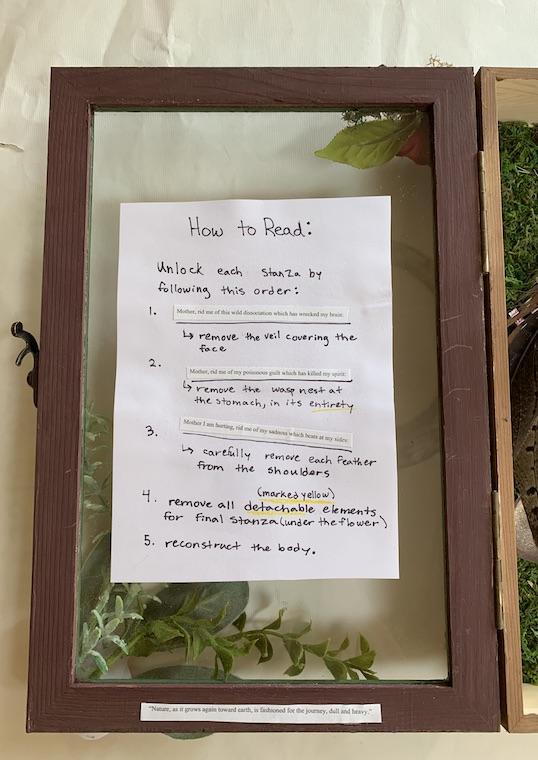 How to Read:
Unlock each stanza by
following this order:
1. Mother, rid me of this wild dissociation which has wrecked my brain:
↳ remove the veil covering the
face
2. Mother, rid me of my poisonous guilt which has killed my spirit:
↳ remove the wasp nest at
the stomach, in its entirety
3. Mother I am hurting, rid me of my sadness which beats at my sides:
↳ carefully remove each feather
from the shoulders
(marked yellow)
4. remove all detachable elements
for final stanza (under the flower)
5. reconstruct the body.
"Nature, as it grows again toward earth, is fashioned for the journey, dull and heavy."